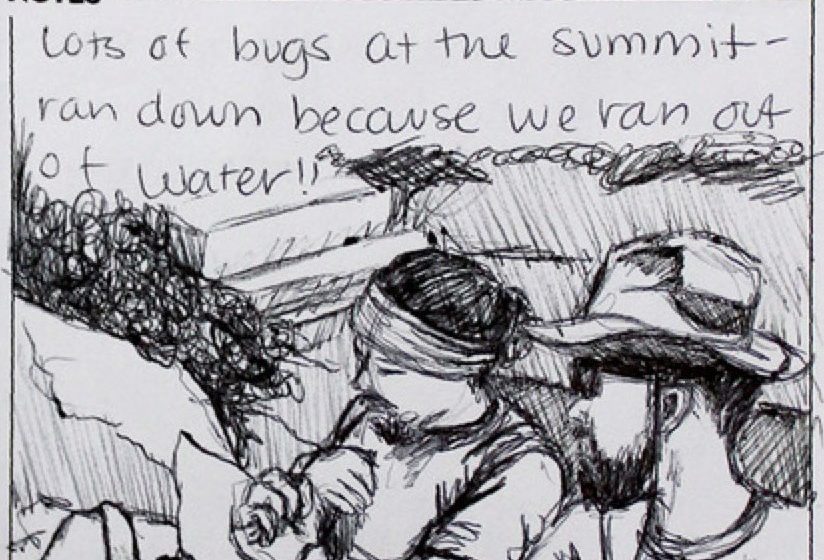 Lots of bugs at the summit-
ran down because we ran out
of water!!